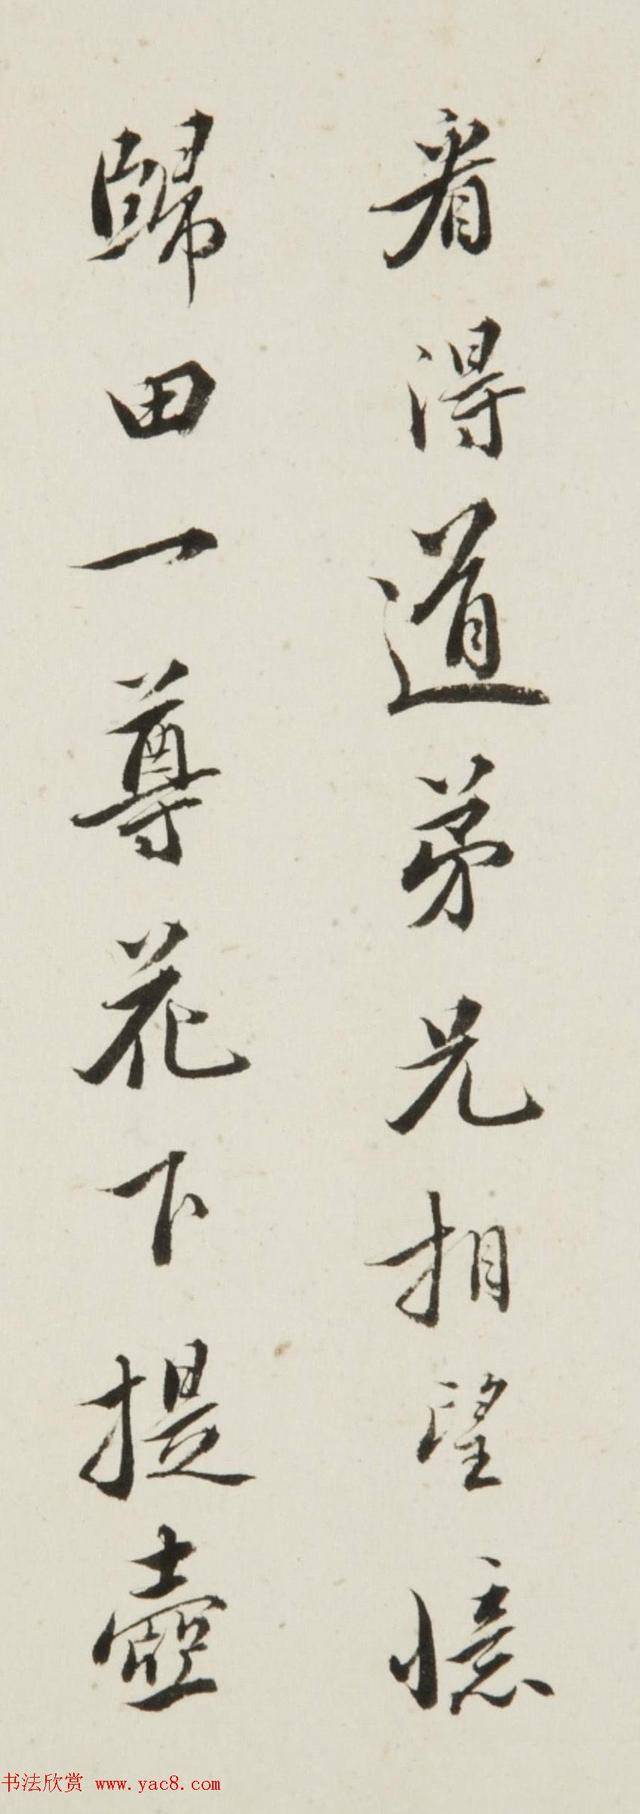 看得道弟兄相望憶
歸田一尊花下提壺
书法欣赏 www.yac8.com